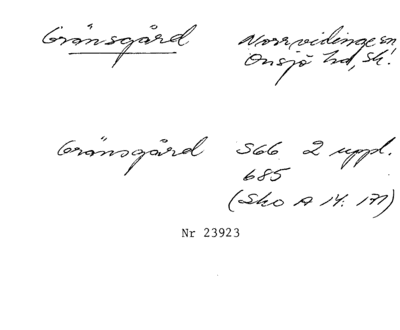 Gränsgård Norrvidinge sn
Onsjö hd, Sk.
Gränsgård S66 2 uppl.
685
(Sko A 14: 171)
Nr 23923